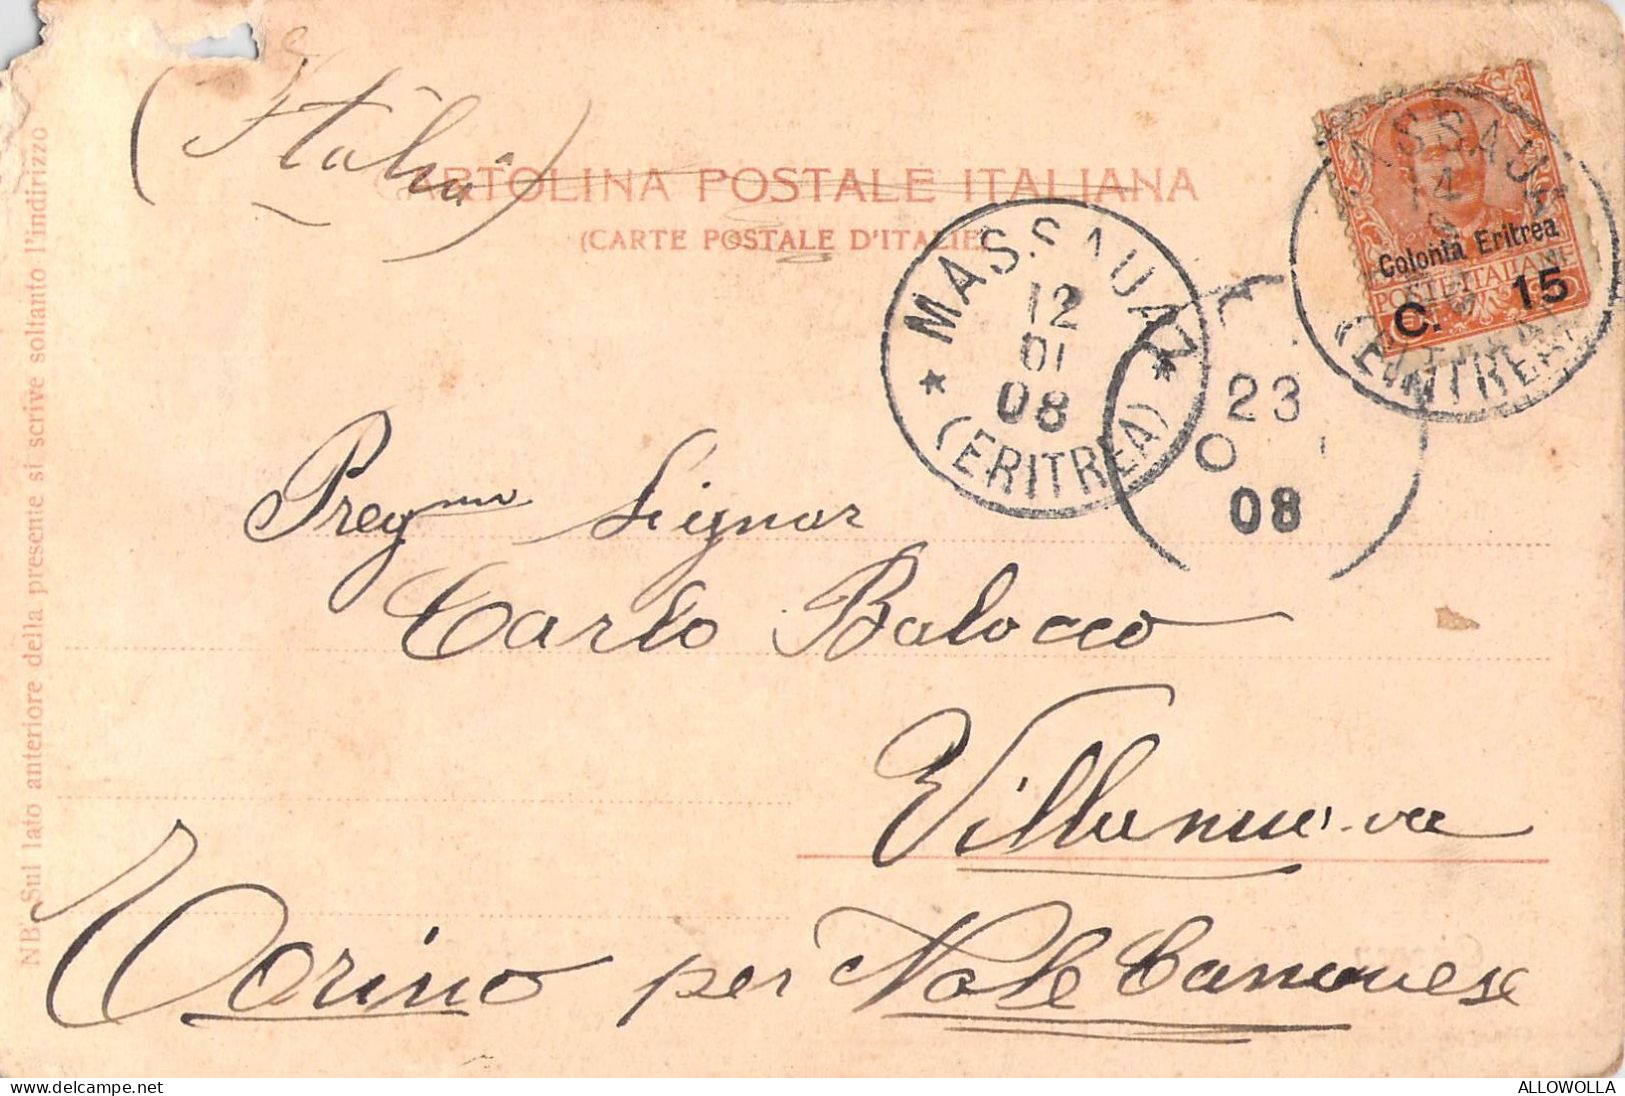 (Italia)
CARTOLINA POSTALE ITALIANA
(CARTE POSTALE D'ITALIE)
MASSAUA
12
01
08
(ERITREA)
23
08
MASSAUA
14
(ERITREA)
Colonia Eritrea
POSTE ITALIANE
C. 15
Pregmo Signor
Carlo Balocco
Villanuova
Torino per Nole Canavese
NB. Sul lato anteriore della presente si scrive soltanto l'indirizzo
ALLOWOLLA